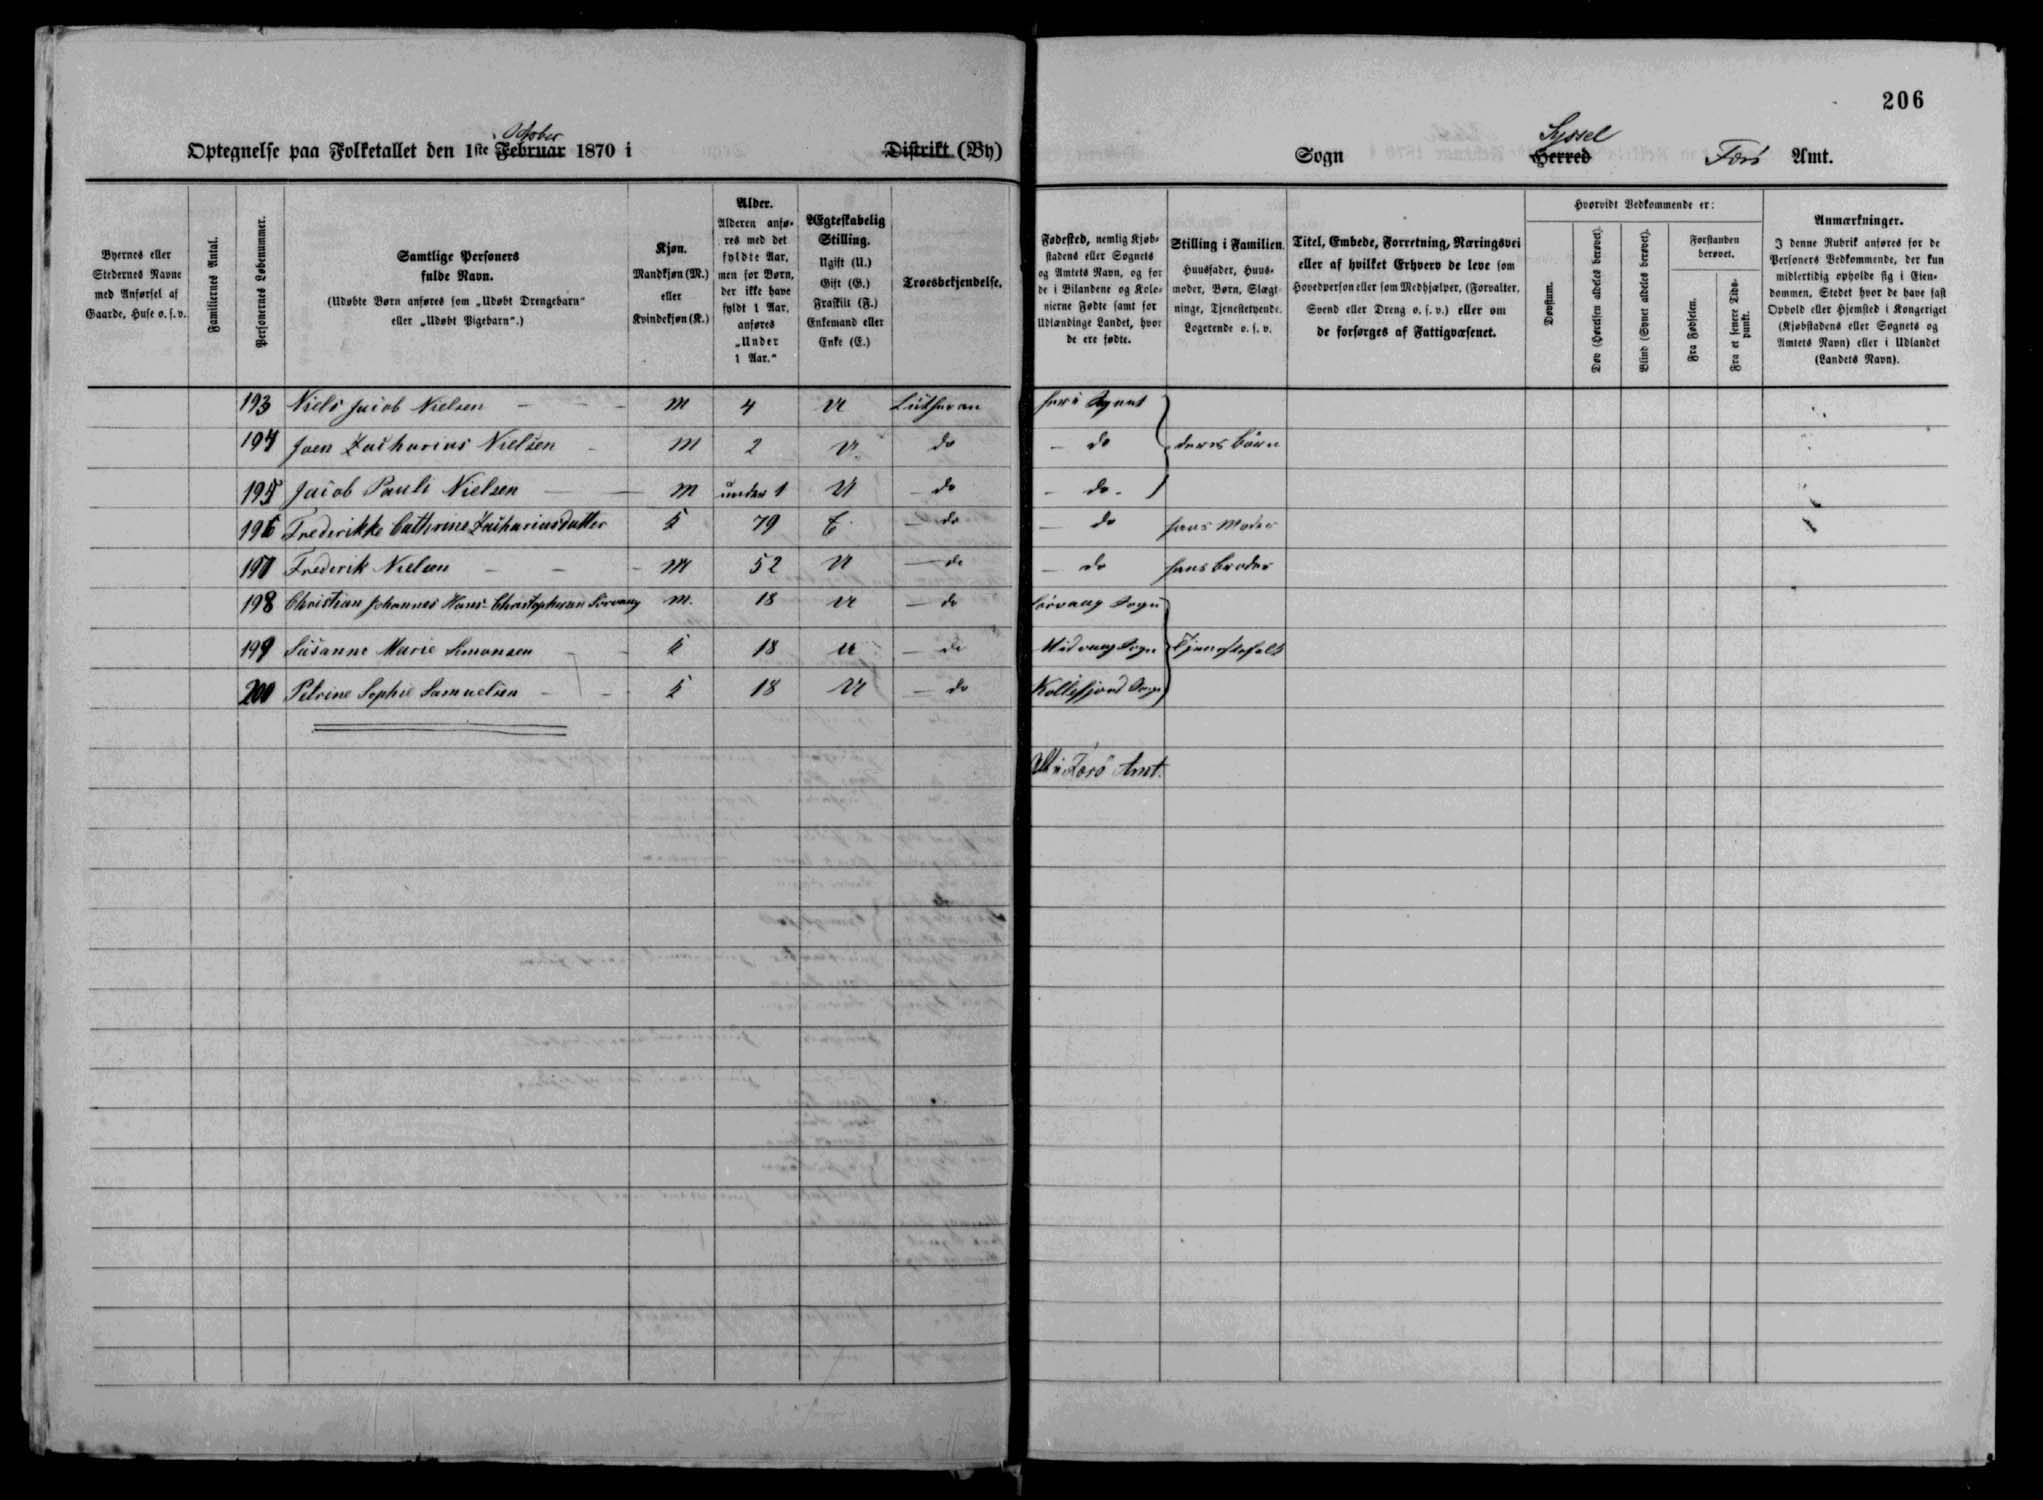 206
October
Optegnelse paa Folketallet den 1ste Februar 1870 i Distrikt (By)
Syssel
Sogn Herred Færö Amt.
Byernes eller Stedernes Navne med Anførsel af Gaarde, Huse o. s. v.
Familiernes Antal.
Personernes Løbenummer.
Samtlige Personers fulde Navn.
(Udøbte Børn anføres som „Udøbt Drengebarn“ eller „Udøbt Pigebarn“.)
Kjøn.
Mandkjøn (M.) eller Kvindekjøn (K.)
Alder.
Alderen anføres med det fyldte Aar, men for Børn, der ikke have fyldt 1 Aar, anføres „Under 1 Aar.“
Ægteskabelig Stilling.
Ugift (U.) Gift (G.) Fraskilt (F.) Enkemand eller Enke (E.)
Troesbekjendelse.
Fødested, nemlig Kjøbstadens eller Sognets og Amtets Navn, og for de i Bilandene og Kolonierne Fødte samt for Udlændinge Landet, hvor de ere fødte.
Stilling i Familien.
Huusfader, Huusmoder, Børn, Slægtninge, Tjenestetyende, Logerende o. s. v.
Titel, Embede, Forretning, Næringsvei eller af hvilket Erhverv de leve som Hovedperson eller som Medhjælper, (Forvalter, Svend eller Dreng o. s. v.) eller om de forsørges af Fattigvæsenet.
Hvorvidt Vedkommende er:
Døvstum.
Døv (Hørelsen aldeles berøvet).
Blind (Synet aldeles berøvet).
Forstanden berøvet.
Fra Fødselen.
Fra et senere Tidspunkt.
Anmærkninger.
I denne Rubrik anføres for de Personers Vedkommende, der kun midlertidig opholde sig i Eiendommen, Stedet hvor de have fast Ophold eller Hjemsted i Kongeriget (Kjøbstadens eller Sognets og Amtets Navn) eller i Udlandet (Landets Navn).
193 Niels Jacob Nielsen M 4 U Lutheran her i Sognet
194 Joen Zacharias Nielsen M 2 U do do deres börn
195 Jacob Pauli Nielsen M under 1 U do do
196 Frederikke Cathrine Zachariasdatter K 79 E do do hans Moder
197 Frederik Nielsen M 52 U do do hans broder
198 Christian Johannes Hans Christophersen Sörvaag M. 18 U do Sörvaag Sogn
199 Susanne Marie Simonsen K 18 U do Midvaag Sogn Tjenestefolk
200 Petrine Sophie Samuelsen K 18 U do Kollefjord Sogn
Alt i Færö Amt.